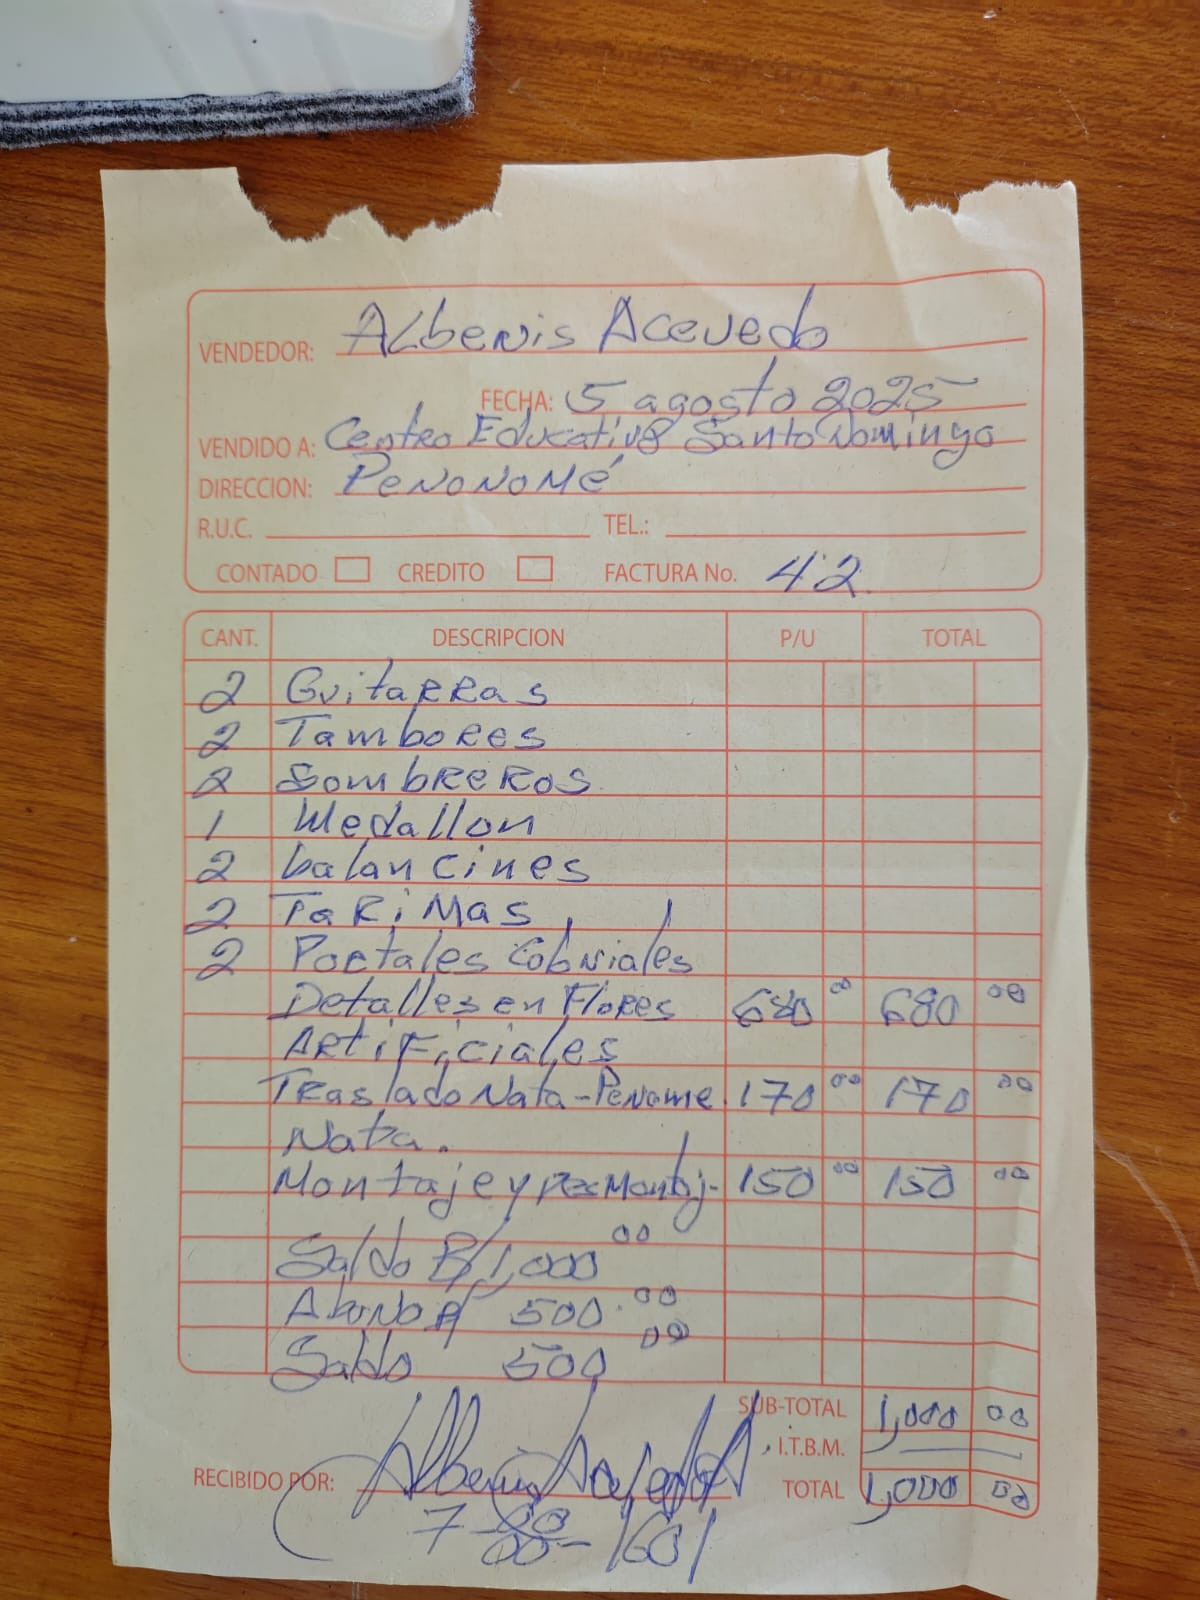 VENDEDOR: Albenis Acevedo
FECHA: 5 agosto 2025
VENDIDO A: Centro Educativo Santo Domingo
DIRECCION: Penonomé
R.U.C. TEL.:
CONTADO CREDITO FACTURA No. 42
CANT. DESCRIPCION P/U TOTAL
2 Guitarras
2 Tambores
2 Sombreros
1 Medallon
2 balancines
2 Tarimas
2 Portales Coloniales
Detalles en Flores 680 00 680 00
Artificiales
Traslado Nata-Penome 170 00 170 00
Nata.
Montaje y Desmontaj- 150 00 150 00
Saldo B/1,000 00
Abono 500.00
Saldo 500 00
SUB-TOTAL 1,000 00
I.T.B.M.
RECIBIDO POR: Albenis Acevedo TOTAL 1,000 00